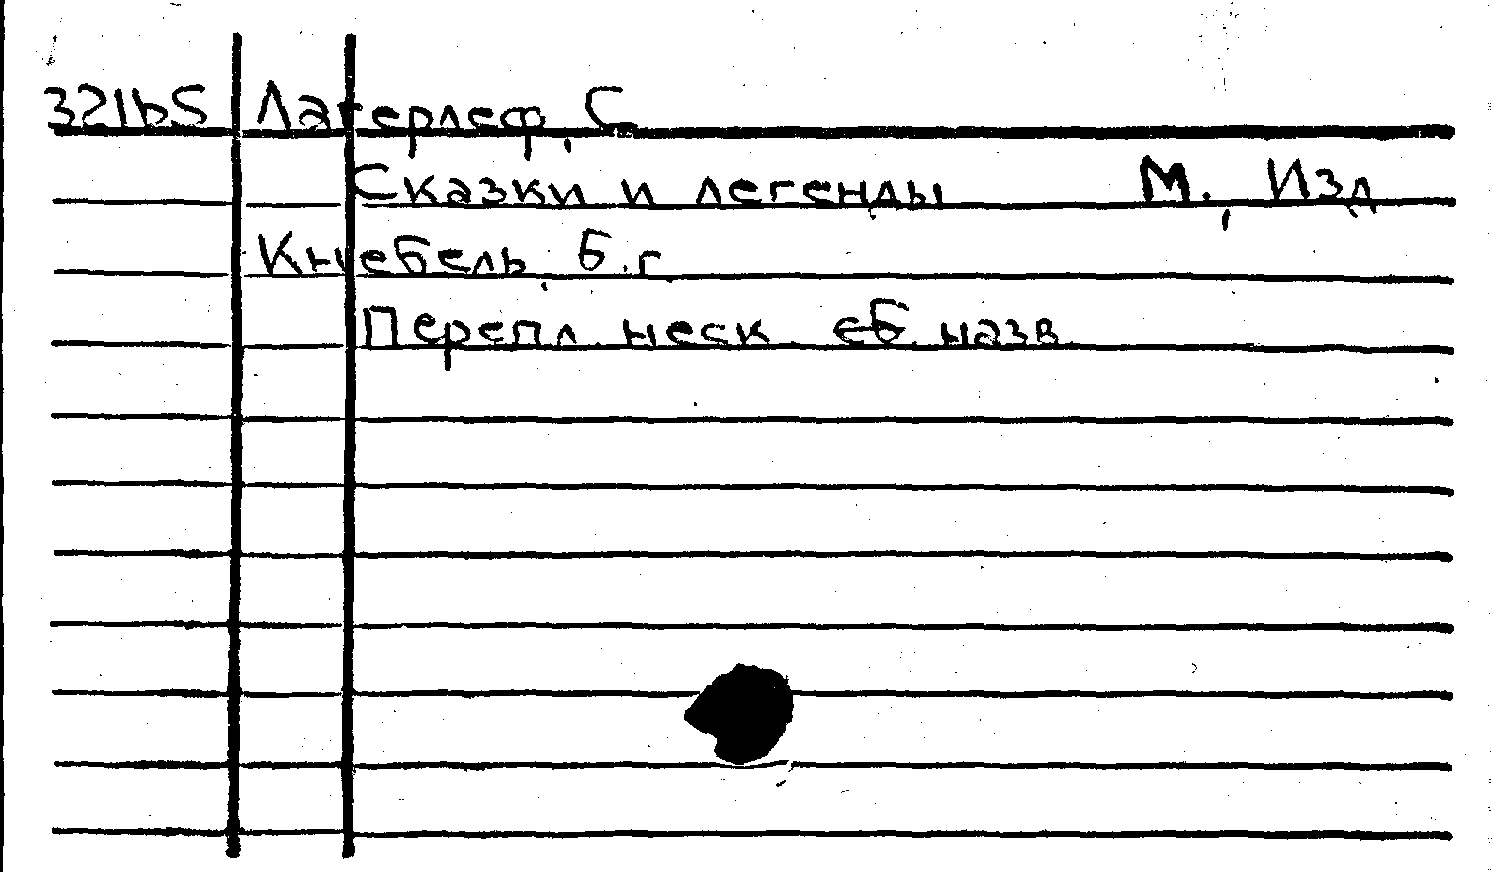 32165 Лагерлеф, С
Сказки и легенды М., Изд
Кнебель, б.г
Перепл. неск. сб. назв.